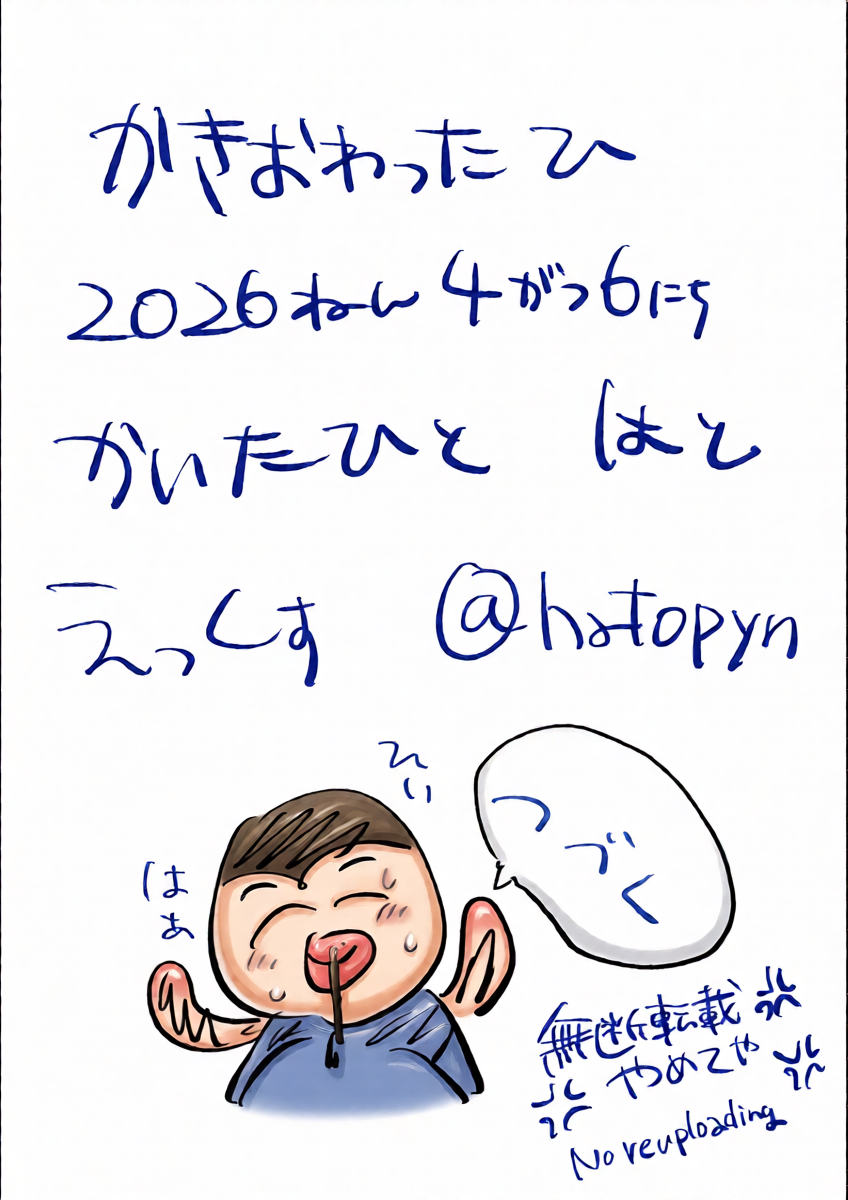 かきおわったひ
2026ねん4がつ6にち
かいたひと　はと
えっくす　@hatopyn
ひい
はあ
つづく
無断転載
やめてや
No reuploading